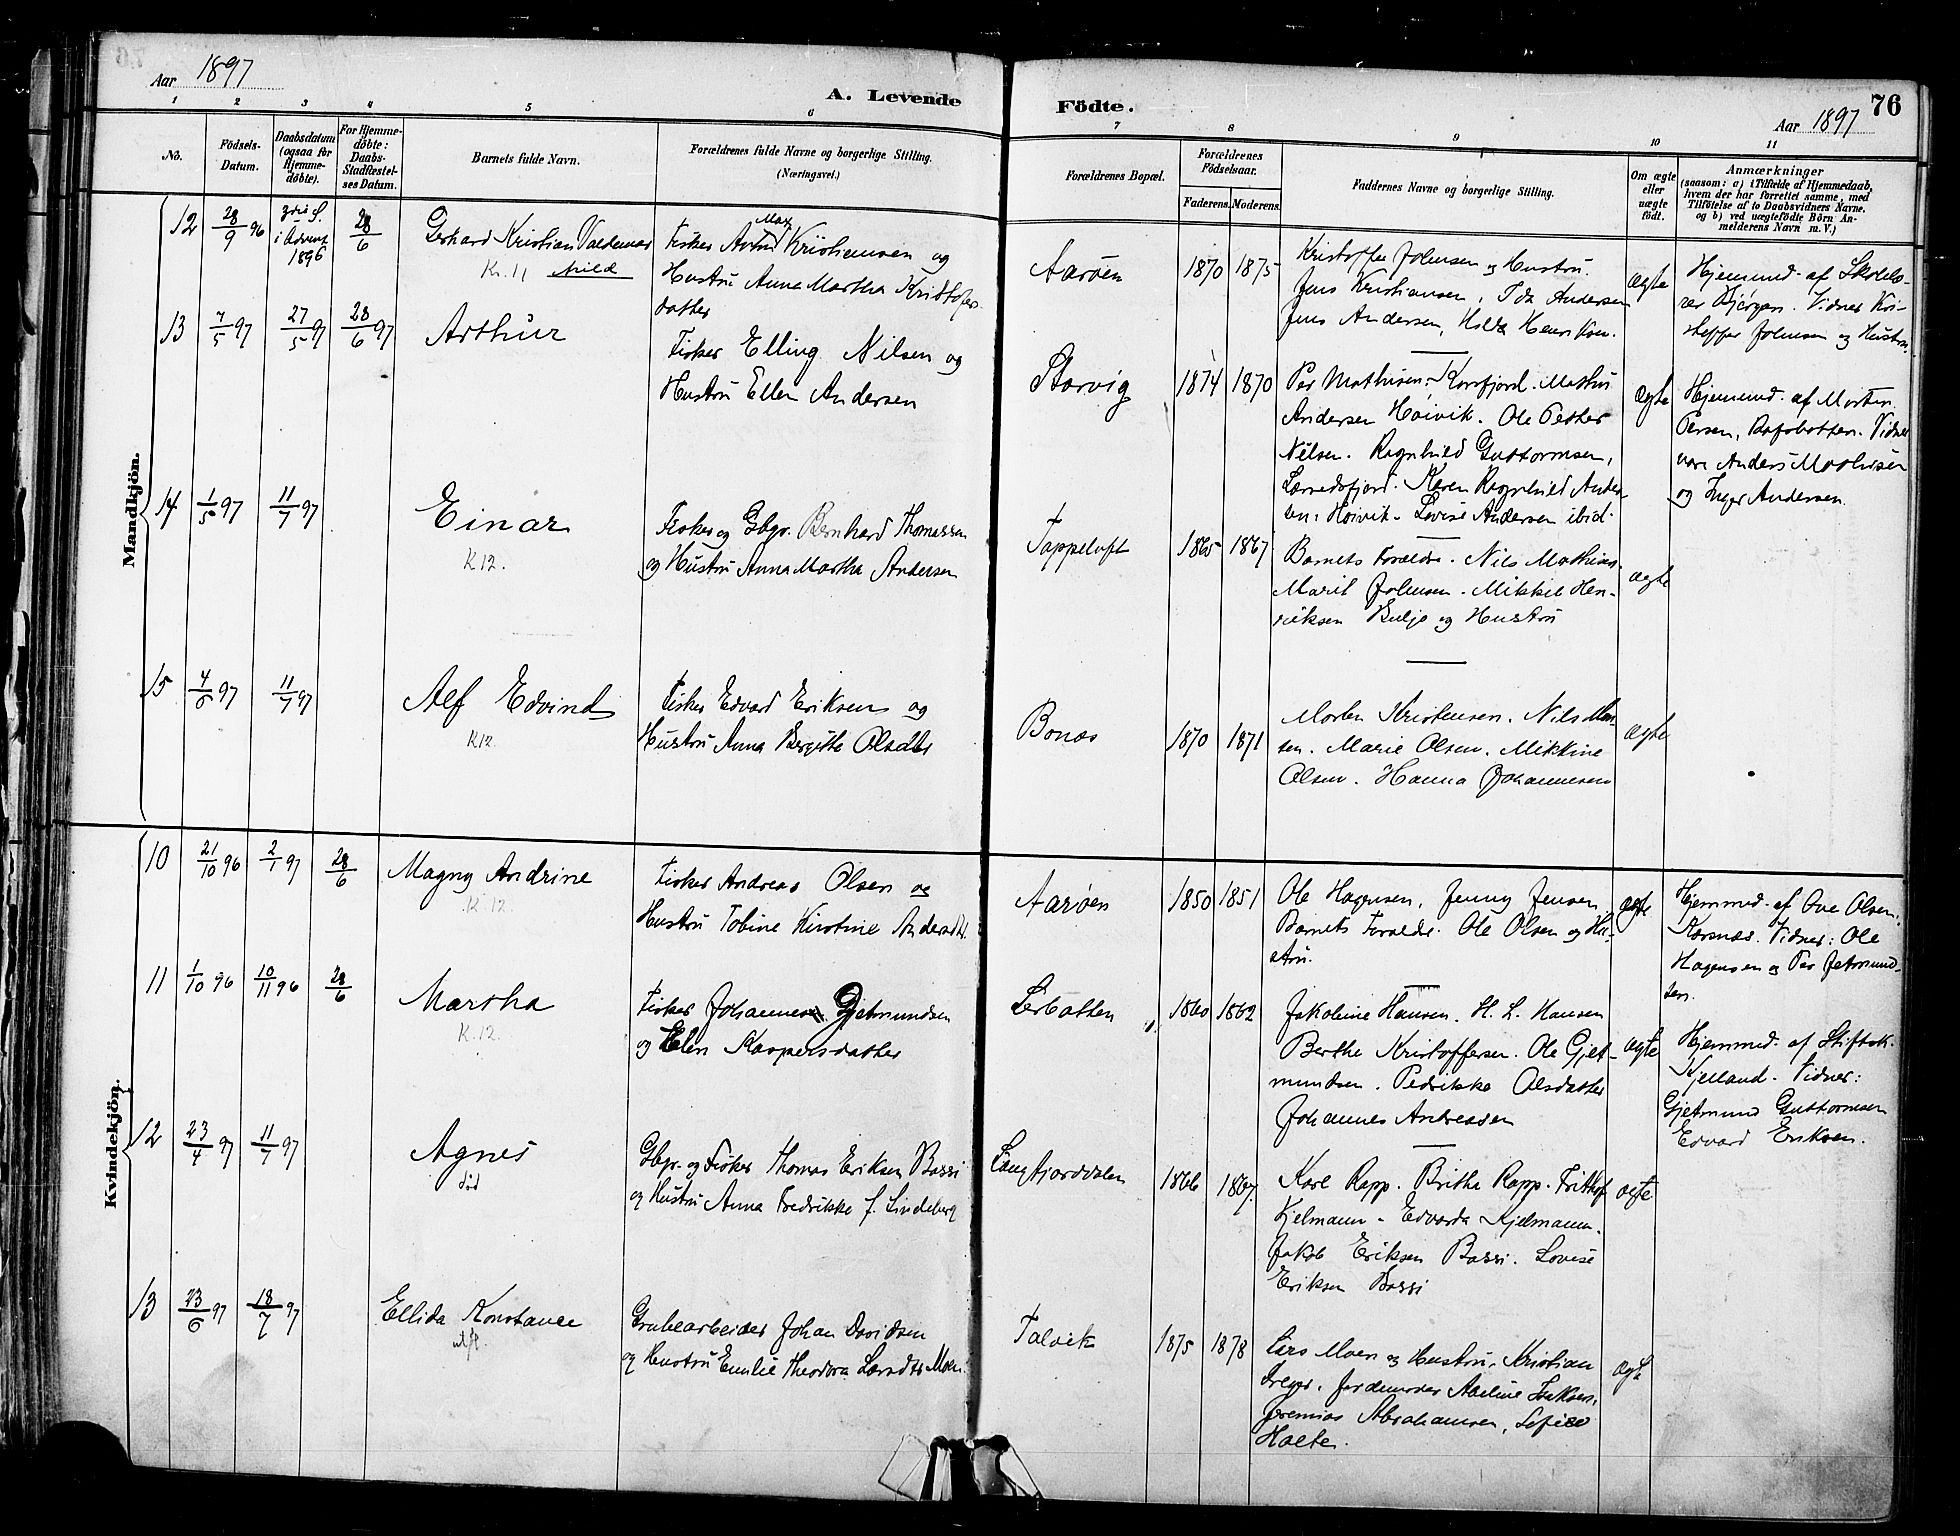 Aar 1897
A. Levende Födte.
76
Aar 1897
1 2 3 4 5 6 7 8 9 10 11
No.
Födsels-Datum.
Daabsdatum (ogsaa for Hjemme-döbte).
For Hjemme-döbte: Daabs-Stadfæstel-ses Datum.
Barnets fulde Navn.
Forældrenes fulde Navne og borgerlige Stilling. (Næringsvei.)
Forældrenes Bopæl.
Forældrenes Födselsaar.
Faderens. Moderens.
Faddernes Navne og borgerlige Stilling.
Om ægte eller uægte födt.
Anmærkninger
(saasom: a) i Tilfælde af Hjemmedaab, hvem der har forrettet samme, med Tilföielse af to Daabsvidners Navne, og b) ved uægtefödte Börn An-melderens Navn m. V.)
Mandkjön.
12 28/9 96 3die S. i Advent 1896 28/6
Gerhard Kristian Valdemar
K. 11
Fisker Max Kristiansen og
Hustru Anna Martha Kristofer-
datter
Aarøen 1870 1875
Kristoffer Johnsen og Hustru.
Jens Kristiansen, Ida Andersen
Jens Andersen, Hilda Henriksen.
ægte
Hjemmed. af Skolelæ-
rer Bjørgan. Vidner Kri-
stoffer Johnsen og Hustru.
13 7/5 97 27/5 97 28/6 97
Arthur
Fisker Elling Nilsen og
Hustru Ellen Andersen
Storvig 1874 1870
Per Mathisen, Korsfjord. Mathis
Andersen Høivik. Ole Peder
Nilsen. Ragnhild Guttormsen,
Lærredsfjord. Karen Ragnhild Ander-
sen, Høivik. Lovise Andersen ibid.
ægte
Hjemmed. af Morten
Persen, Rafsbotten. Vidner
var: Anders Mathisen
og Inger Andersen.
14 1/5 97 11/7 97
Einar
K 12.
Fisker og Gbgr. Bernhard Thomassen
og Hustru Anna Martha Andersen
Tappeluft 1865 1867
Barnets Forældre. Nils Mathisen
Marit Johnsen. Mikkel Hen-
riksen Buljo og Hustru
ægte
15 4/6 97 11/7 97
Alf Edvind
K12.
Fisker Edvard Eriksen og
Hustru Anna Bergitte Olsdtr
Bonæs 1870 1871
Morten Kristensen. Nils Han-
sen. Marie Olsen. Mikkine
Olsen. Hanna Johannesen
ægte
Kvindekjön.
10 21/10 96 2/1 97 28/6
Magny Andrine
K 12
Fisker Andreas Olsen og
Hustru Tobine Kirstine Andersdtr.
Aarøen 1850 1851
Ole Hagensen, Jenny Jensen
Barnets Forældre. Ole Olsen og Hu-
stru.
ægte
Hjemmed. af Ove Olsen,
Korsnæs. Vidner: Ole
Hagensen og Per Jetmund-
sen.
11 1/10 96 10/11 96 28/6
Martha
K.12.
Fisker Johannes Gjetmundsen
og Elen Kaspersdatter
Lerbotten 1860 1862
Jakobine Hansen. H. L. Hansen
Berthe Kristoffersen. Ole Gjet-
mundsen. Pedrikke Olsdatter
Johannes Andreassen
ægte
Hjemmed. af Stiftsk.
Kjelland. Vidner:
Gjetmund Guttormsen
Edvard Eriksen.
12 23/4 97 11/7 97
Agnes
død
Gbgr. og Fisker Thomas Eriksen Bassi
og Hustru Anna Fredrikke f. Lindeberg
Langfjorddalen 1866 1867
Karl Rapp. Britha Rapp. Frithof
Kjelmann. Edvarda Kjelmann.
Jakob Eriksen Bassi. Lovise
Eriksen Bassi
ægte
13 23/6 97 18/7 97
Ellida Konstance
utfl.
Grubearbeider Johan Davidsen
og Hustru Emilie Theodora Larsdtr Moen
Talvik 1875 1878
Lars Moen og Hustru, Kristian
Jordemoder Abeline Isaksen,
Jeremias Abrahamsen,
Holten.
ægte